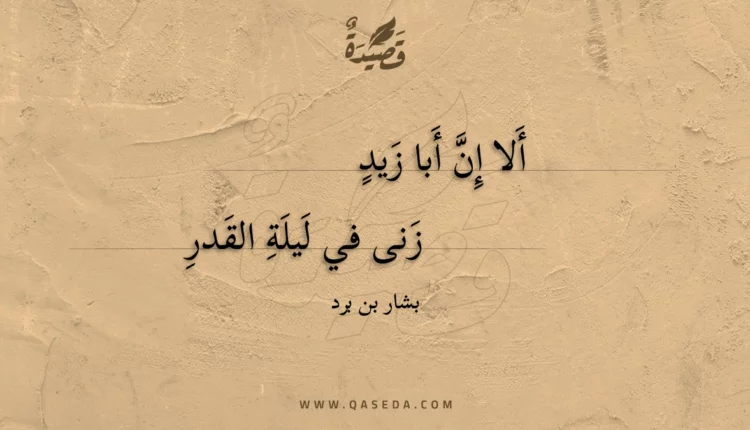 قَصِيْدَةٌ
أَلا إِنَّ أَبا زَيدٍ
زَنى في لَيلَةِ القَدرِ
بشار بن برد
WWW.QASEDA.COM